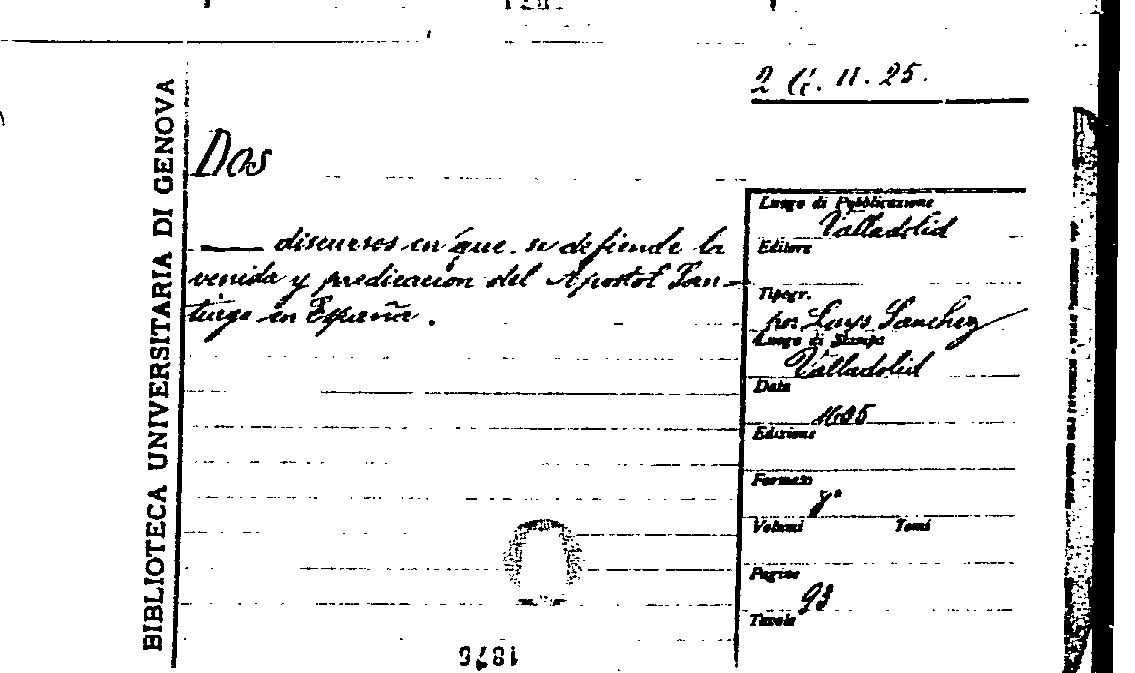 2 G. II. 25.
BIBLIOTECA UNIVERSITARIA DI GENOVA
Dos
—— discursos en que se defiende la
venida y predicacion del Apostol San-
tiago en España.
Luogo di Pubblicazione
Valladolid
Editore
Tipogr.
por Luys Sanchez
Luogo di Stampa
Valladolid
Data
1605
Edizione
Formato
8°
Volumi Tomi
Pagine
93
Tavole